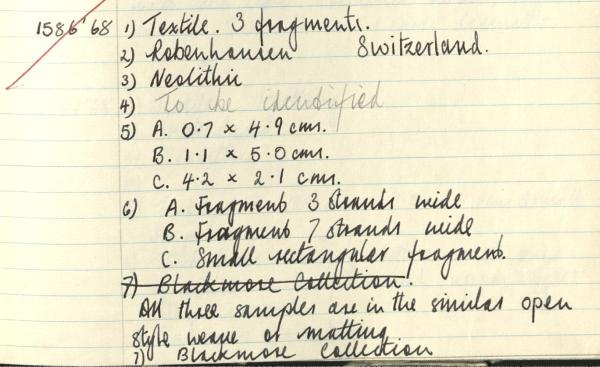 1586'68 1) Textile. 3 fragments.
2) Robenhausen Switzerland.
3) Neolithic
4) To be identified
5) A. 0.7 x 4.9 cms.
B. 1.1 x 5.0 cms.
C. 4.2 x 2.1 cms.
6) A. Fragment 3 strands wide
B. Fragment 7 strands wide
C. Small rectangular fragment.
7) Blackmore Collection.
All three samples are in the similar open
style weave or matting
7) Blackmore Collection